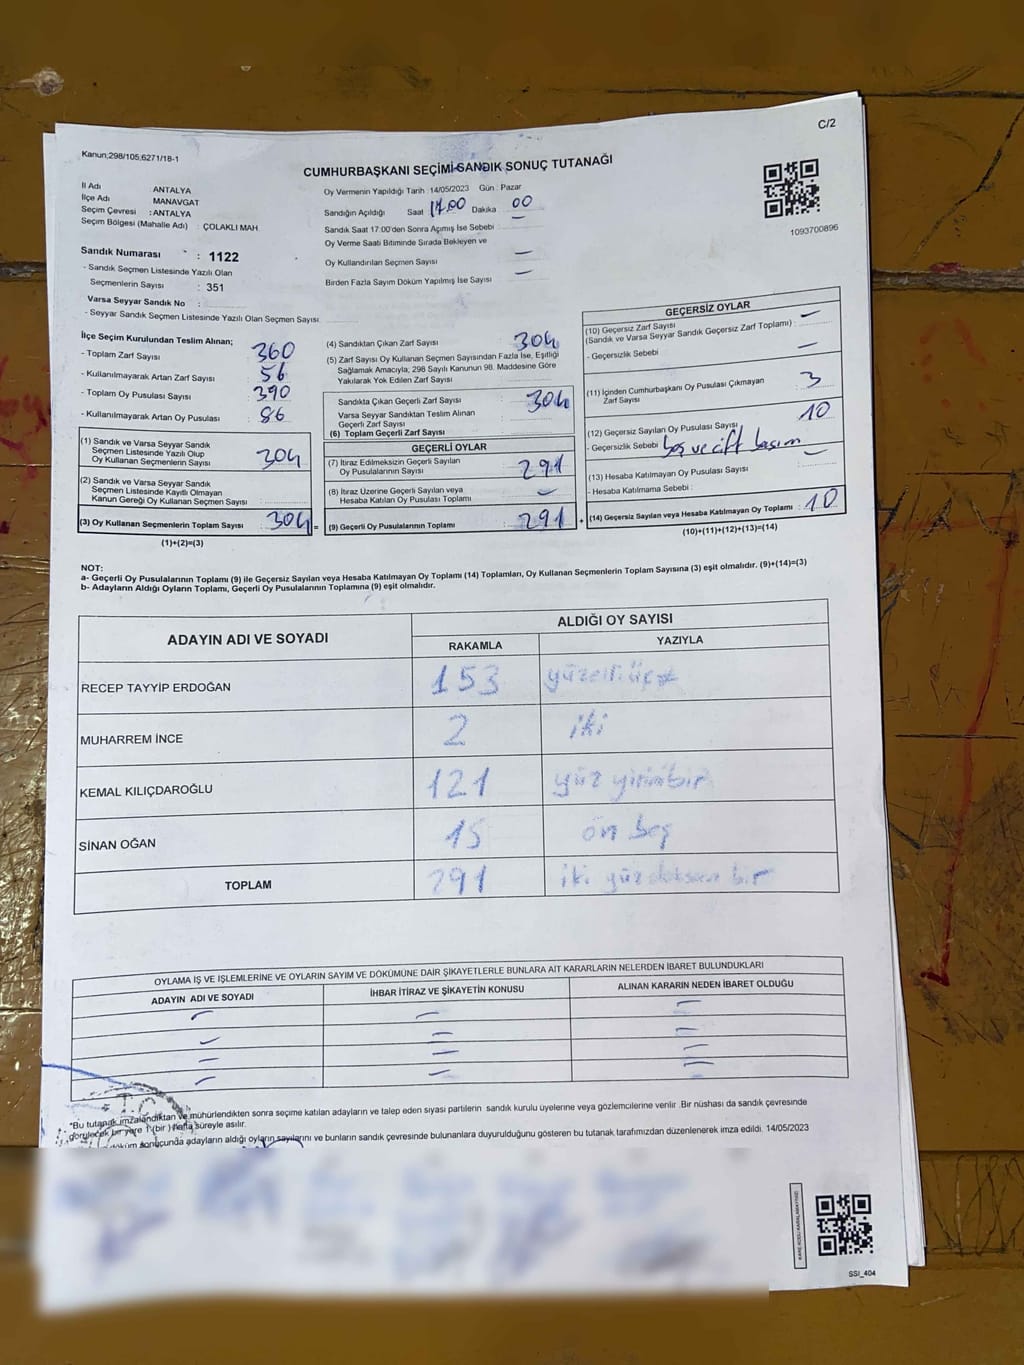 C/2
Kanun;298/105;6271/18-1
CUMHURBAŞKANI SEÇİMİ SANDIK SONUÇ TUTANAĞI
İl Adı ANTALYA
İlçe Adı MANAVGAT
Seçim Çevresi : ANTALYA
Seçim Bölgesi (Mahalle Adı) : ÇOLAKLI MAH.
Oy Vermenin Yapıldığı Tarih : 14/05/2023 Gün : Pazar
Sandığın Açıldığı Saat 17.00 Dakika 00
Sandık Saat 17:00'den Sonra Açımış İse Sebebi
Oy Verme Saati Bitiminde Sırada Bekleyen ve
Oy Kullandırılan Seçmen Sayısı —
Birden Fazla Sayım Döküm Yapılmış İse Sayısı —
1093700896
Sandık Numarası : 1122
- Sandık Seçmen Listesinde Yazılı Olan
Seçmenlerin Sayısı : 351
Varsa Seyyar Sandık No :
- Seyyar Sandık Seçmen Listesinde Yazılı Olan Seçmen Sayısı
İlçe Seçim Kurulundan Teslim Alınan;
- Toplam Zarf Sayısı : 360
- Kullanılmayarak Artan Zarf Sayısı : 56
- Toplam Oy Pusulası Sayısı : 390
- Kullanılmayarak Artan Oy Pusulası : 86
(1) Sandık ve Varsa Seyyar Sandık
Seçmen Listesinde Yazılı Olup
Oy Kullanan Seçmenlerin Sayısı : 304
(2) Sandık ve Varsa Seyyar Sandık
Seçmen Listesinde Kayıtlı Olmayan
Kanun Gereği Oy Kullanan Seçmen Sayısı
(3) Oy Kullanan Seçmenlerin Toplam Sayısı : 304 =
(1)+(2)=(3)
(4) Sandıktan Çıkan Zarf Sayısı : 304
(5) Zarf Sayısı Oy Kullanan Seçmen Sayısından Fazla İse, Eşitliği
Sağlamak Amacıyla; 298 Sayılı Kanunun 98. Maddesine Göre
Yakılarak Yok Edilen Zarf Sayısı
Sandıkta Çıkan Geçerli Zarf Sayısı : 304
Varsa Seyyar Sandıktan Teslim Alınan
Geçerli Zarf Sayısı
(6) Toplam Geçerli Zarf Sayısı
GEÇERLİ OYLAR
(7) İtiraz Edilmeksizin Geçerli Sayılan
Oy Pusulalarının Sayısı : 291
(8) İtiraz Üzerine Geçerli Sayılan veya
Hesaba Katılan Oy Pusulası Toplamı : —
(9) Geçerli Oy Pusulalarının Toplamı : 291 +
GEÇERSİZ OYLAR
(10) Geçersiz Zarf Sayısı —
(Sandık ve Varsa Seyyar Sandık Geçersiz Zarf Toplamı) :
- Geçersizlik Sebebi —
(11) İçinden Cumhurbaşkanı Oy Pusulası Çıkmayan 3
Zarf Sayısı
(12) Geçersiz Sayılan Oy Pusulası Sayısı 10
- Geçersizlik Sebebi boş ve çift basım
(13) Hesaba Katılmayan Oy Pusulası Sayısı —
- Hesaba Katılmama Sebebi :
(14) Geçersiz Sayılan veya Hesaba Katılmayan Oy Toplamı : 10
(10)+(11)+(12)+(13)=(14)
NOT:
a- Geçerli Oy Pusulalarının Toplamı (9) ile Geçersiz Sayılan veya Hesaba Katılmayan Oy Toplamı (14) Toplamları, Oy Kullanan Seçmenlerin Toplam Sayısına (3) eşit olmalıdır. (9)+(14)=(3)
b- Adayların Aldığı Oyların Toplamı, Geçerli Oy Pusulalarının Toplamına (9) eşit olmalıdır.
ADAYIN ADI VE SOYADI
ALDIĞI OY SAYISI
RAKAMLA YAZIYLA
RECEP TAYYİP ERDOĞAN 153 yüzelli üç
MUHARREM İNCE 2 iki
KEMAL KILIÇDAROĞLU 121 yüz yirmibir
SİNAN OĞAN 15 on beş
TOPLAM 291 iki yüz doksan bir
OYLAMA İŞ VE İŞLEMLERİNE VE OYLARIN SAYIM VE DÖKÜMÜNE DAİR ŞİKAYETLERLE BUNLARA AİT KARARLARIN NELERDEN İBARET BULUNDUKLARI
ADAYIN ADI VE SOYADI İHBAR İTİRAZ VE ŞİKAYETİN KONUSU ALINAN KARARIN NEDEN İBARET OLDUĞU
*Bu tutanak imzalandıktan ve mühürlendikten sonra seçime katılan adayların ve talep eden siyasi partilerin sandık kurulu üyelerine veya gözlemcilerine verilir. Bir nüshası da sandık çevresinde
görülecek bir yere 1 (bir) hafta süreyle asılır.
döküm sonucunda adayların aldığı oyların sayılarını ve bunların sandık çevresinde bulunanlara duyurulduğunu gösteren bu tutanak tarafımızdan düzenlenerek imza edildi. 14/05/2023
SSI_404